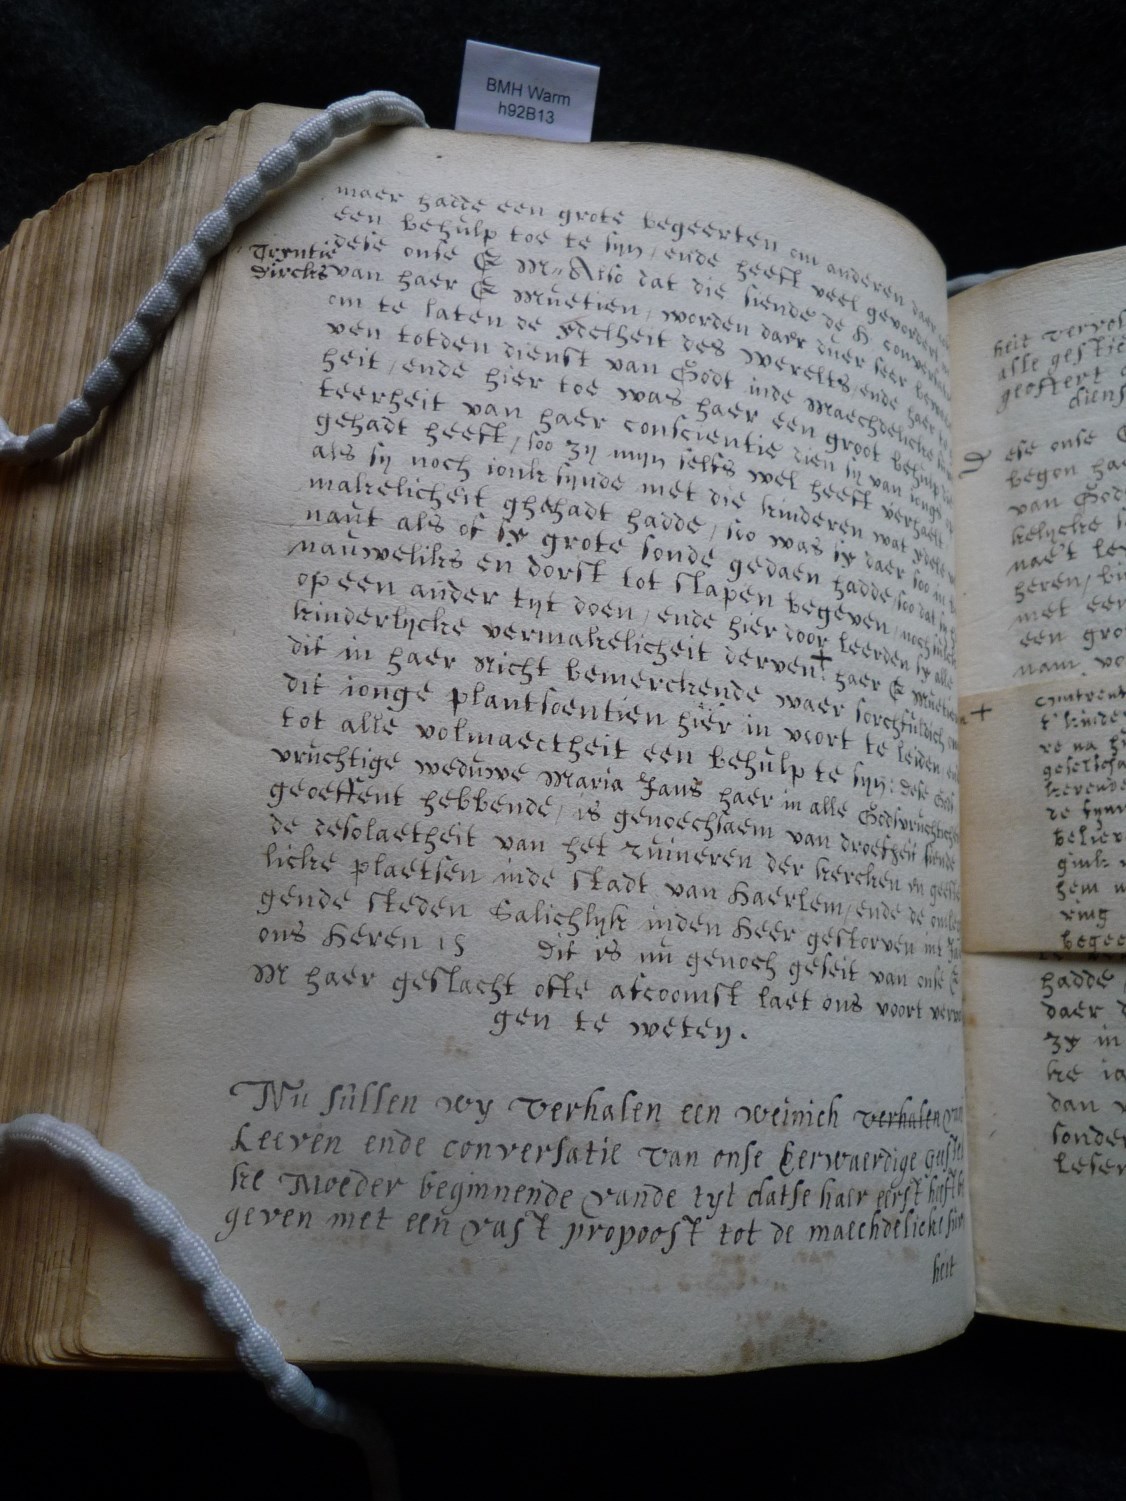 BMH Warm
h92B13
maer hadde een grote begeerten om anderen daer
een behulp toe te syn, ende heeft veel gevordert
Tryntie
Dircks
dese onse E M Also dat die siende de H conversatie
van haer E Muetien, worden daer duer seer
om te laten de ydelheit des werelts, ende haer te
ven totden dienst van Godt inde Maechdelicke
heit, ende hier toe was haer een groot behulp
teerheit van haer conscientie dien sy van iongs
gehadt heeft, soo zy myn selfs wel heeft verhaelt
als sy noch ionk synde met die kinderen wat ydele
makelicheit ghehadt hadde, soo was sy daer soo in
naut als of sy grote sonde gedaen hadde, soo dat sy
nauweliks en dorst tot slapen begeven, noch
op een ander tyt doen, ende hier door leerden sy alle
kinderlycke vermakelicheit derven + haer E Muetien
dit in haer Nicht bemerckende waer sorchfuldich om
dit ionge plantsoentien hier in voort te leiden, en
tot alle volmaectheit een behulp te syn: dese God
vruchtige weduwe Maria Jans haer in alle Godvruchticheit
geoeffent hebbende, is genoechsaem van droefheit siende
de desolaetheit van het ruineren der kercken en geeste
licke plaetsen inde stadt van Haerlem, ende de omleg
gende steden Salichlyk inden Heer gestorven int Jaer
ons Heren 15 Dit is nu genoech geseit van onse E
M haer geslacht ofte afcoomst laet ons voort
gen te weten.
Nu sullen wy verhalen een weinich verhalen van
Leeven ende conversatie van onse Eerwaerdige Geeste
ke Moeder beginnende vande tyt datse haer eerst heeft be
geven met een vast propoost tot de maechdelicke suiver
heit
heit
alle
geoffert
diens
D
ese onse
begon haer
van God
kelycke
naet
heren,
met een
een gro
nam vo
+
omtrent
t kinde
re na
geselscha
de
gink
hem
ring
begee
hadde
daer
zy in
ke
dan
sonder
Leser